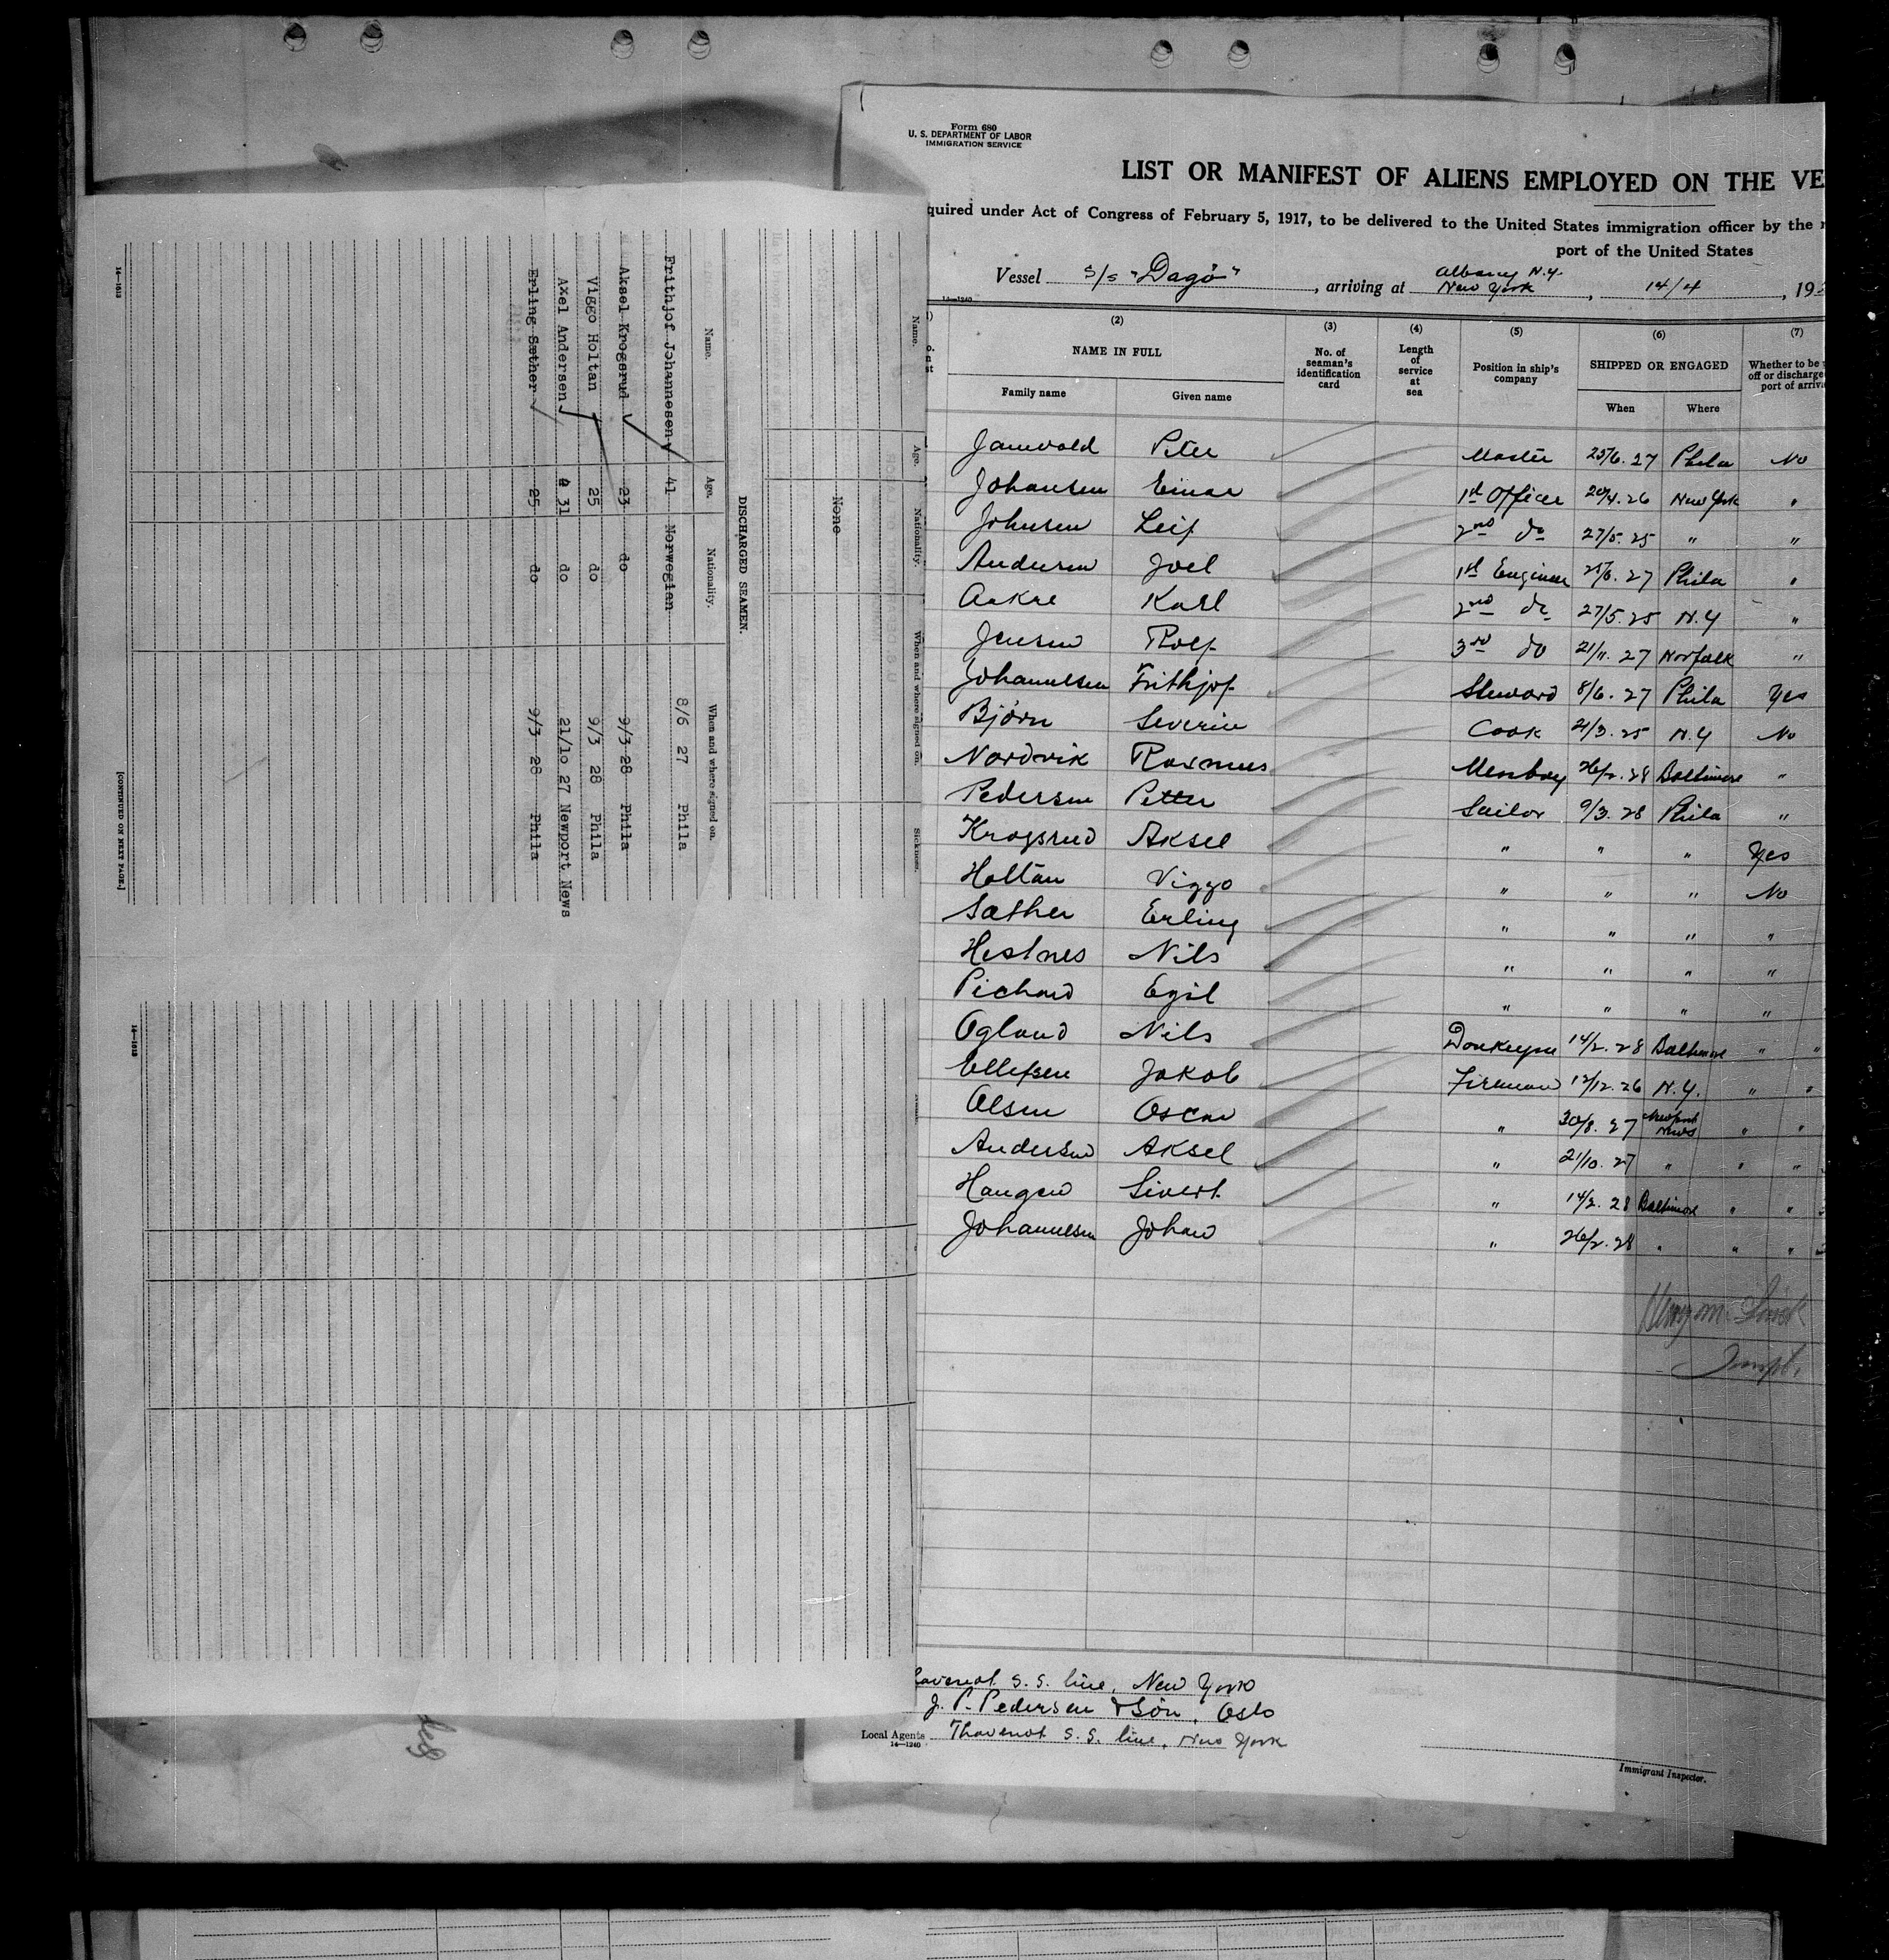 Form 680
U. S. DEPARTMENT OF LABOR
IMMIGRATION SERVICE
LIST OR MANIFEST OF ALIENS EMPLOYED ON THE VE
quired under Act of Congress of February 5, 1917, to be delivered to the United States immigration officer by the
port of the United States
Albany N.Y.
Vessel S/S "Dagö", arriving at New York, 14/4, 19
14—1240
(2) (3) (4) (5) (6) (7)
NAME IN FULL No. of seaman's identification card Length of service at sea Position in ship's company SHIPPED OR ENGAGED Whether to be off or discharge port of arriv
Family name Given name When Where
Peter Master 25/6. 27 Phila No
Johansen Einar 1st Officer 20/4. 26 New York "
Johnsen Leif 2nd do 27/5. 25 " "
Andersen Joel 1st Engineer 25/6. 27 Phila "
Aakre Karl 2nd do 27/5. 25 N.Y "
Jensen Rolf 3rd do 21/11. 27 Norfolk "
Johannesen Frithjof Steward 8/6. 27 Phila Yes
Bjørn Severin Cook 21/3. 25 N.Y No
Nordvik Rasmus Messboy 26/2. 28 Baltimore "
Pedersen Petter Sailor 9/3. 28 Phila "
Krogsrud Aksel " " " Yes
Holtan Viggo " " " No
Sather Erling " " " "
Hestnes Nils " " " "
Egil " " " "
Ogland Nils Donkeym 14/2. 28 Baltimore " "
Ellefsen Jakob Fireman 12/12. 26 N.Y. " "
Olsen Oscar " 30/8. 27 Newport News " "
Andersen Aksel " 21/10. 27 " " "
Haugen Sivert " 14/2. 28 Baltimore " "
Johannesen Johan " 26/2. 28 " " "
S. S. line, New York
J. P. Pedersen & Søn, Oslo
Local Agents Thavenot S. S. line, New York
14—1240
Immigrant Inspector.
Name. Age. Nationality. When and where signed on. Sickness.
None
DISCHARGED SEAMEN.
Name. Age. Nationality. When and where signed on.
Frithjof Johannesen 41 Norwegian 8/6 27 Phila
Aksel Krogsrud 23 do 9/3 28 Phila
Viggo Holtan 25 do 9/3 28 Phila
Axel Andersen 31 do 21/10 27 Newport News
Erling Sæther 25 do 9/3 28 Phila
14—1613
[CONTINUED ON NEXT PAGE.]
14—1613